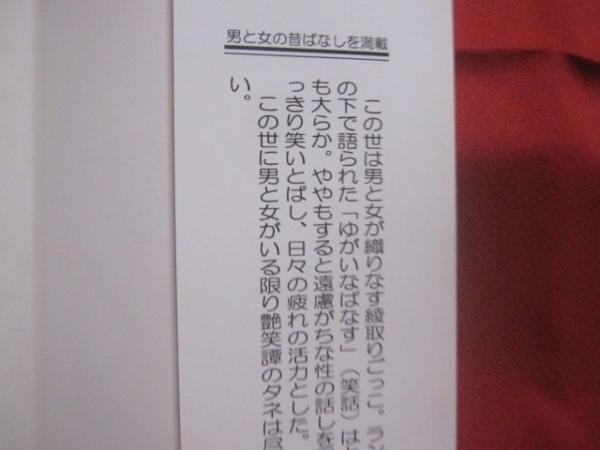 男と女の昔ばなしを満載
この世は男と女が織りなす綾取りごっこ。ラン
の下で語られた「ゆがいなばなす」（笑話）は
も大らか。ややもすると遠慮がちな性の話しを
っきり笑いとばし、日々の疲れの活力とした。
この世に男と女がいる限り艶笑譚のタネは尽
い。